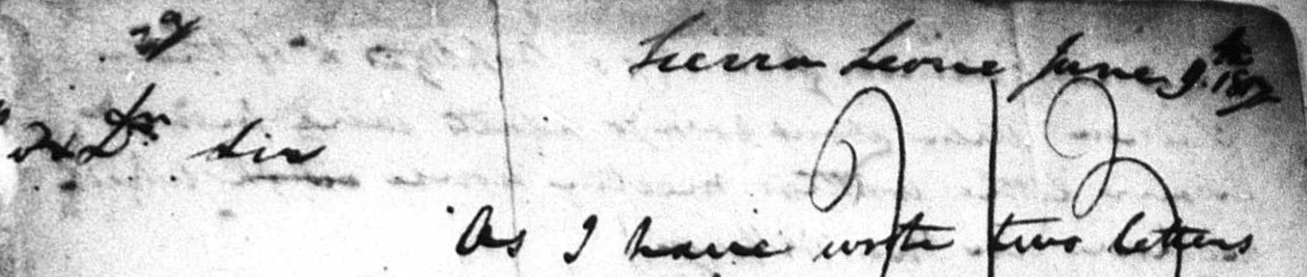 Sierra Leone June 9th 1807
Dr Sir
As I have wrote two letters